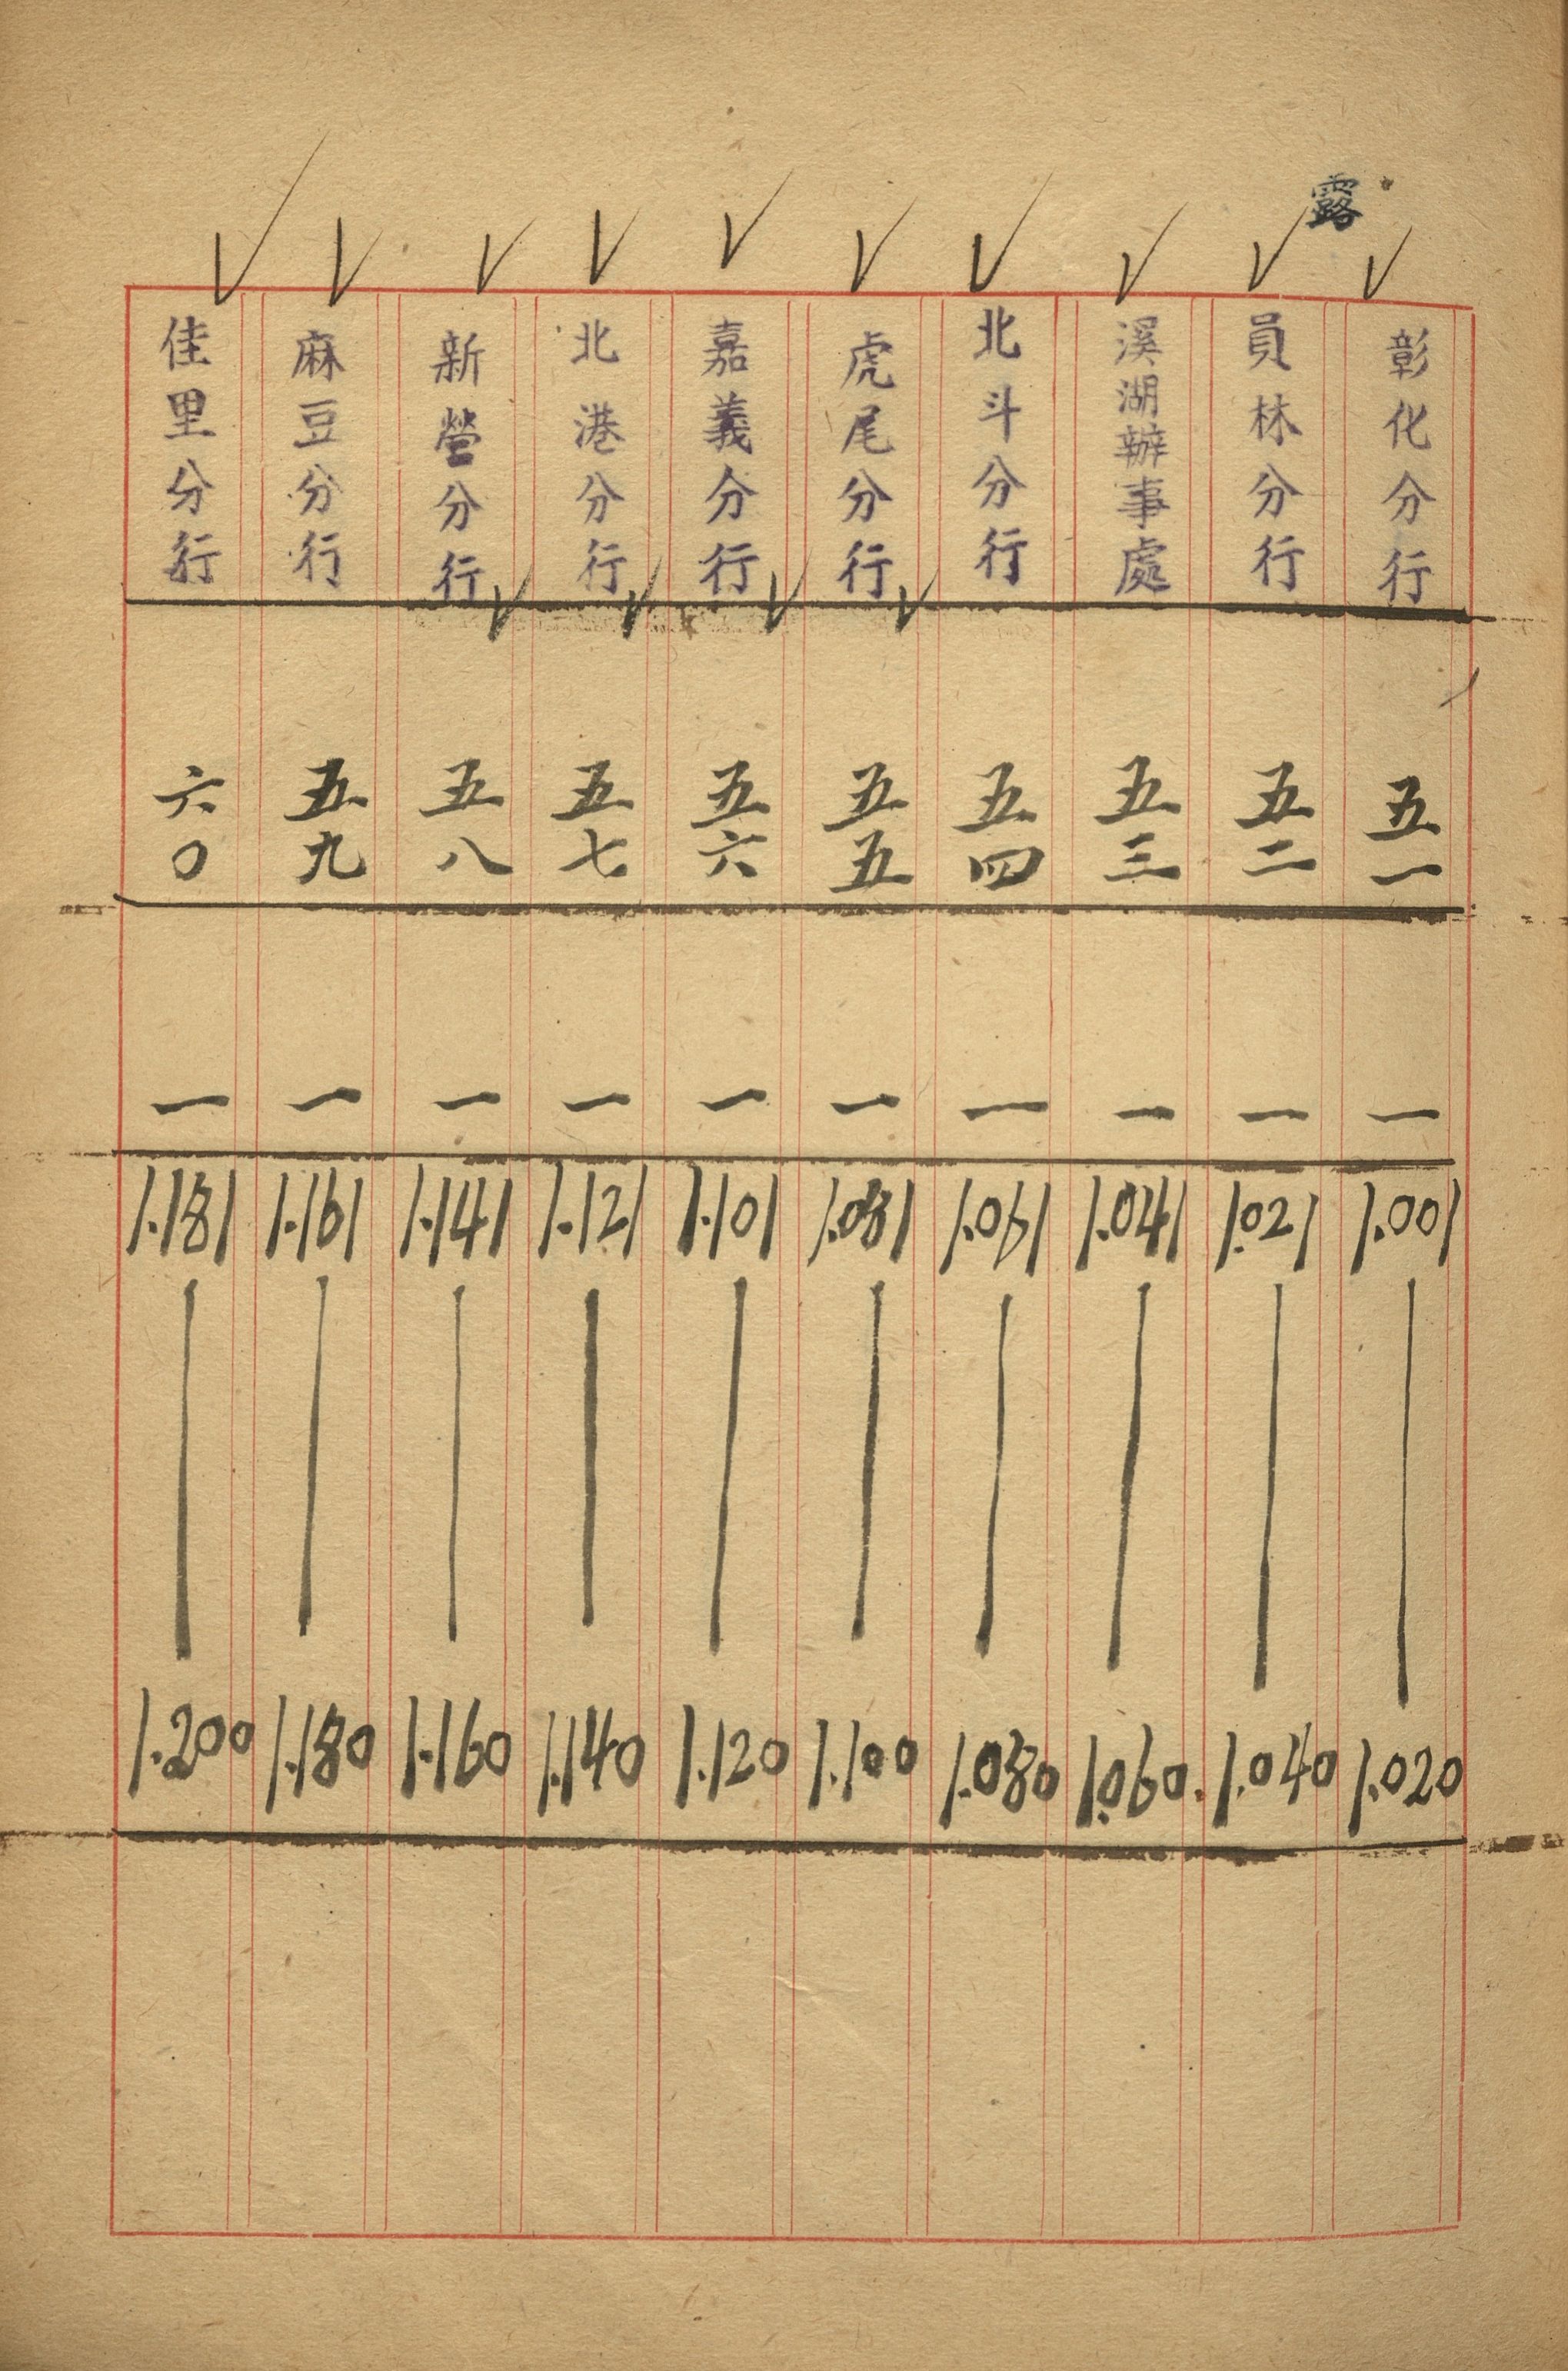 露
彰化分行 五一 一 1.001 | 1.020
員林分行 五二 一 1.021 | 1.040
溪湖辦事處 五三 一 1.041 | 1.060
北斗分行 五四 一 1.061 | 1.080
虎尾分行 五五 一 1.081 | 1.100
嘉義分行 五六 一 1.101 | 1.120
北港分行 五七 一 1.121 | 1.140
新營分行 五八 一 1.141 | 1.160
麻豆分行 五九 一 1.161 | 1.180
佳里分行 六〇 一 1.181 | 1.200